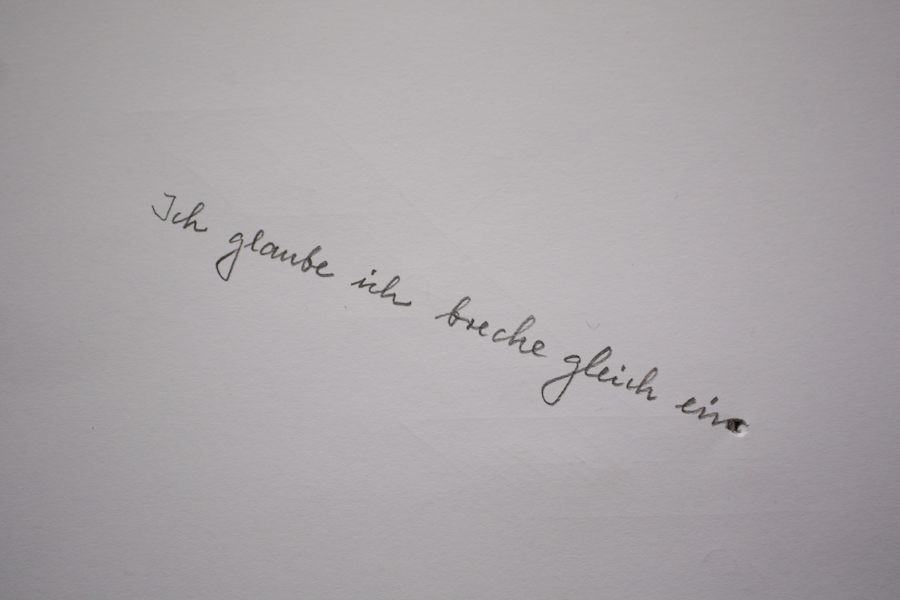 Ich glaube ich breche gleich ein